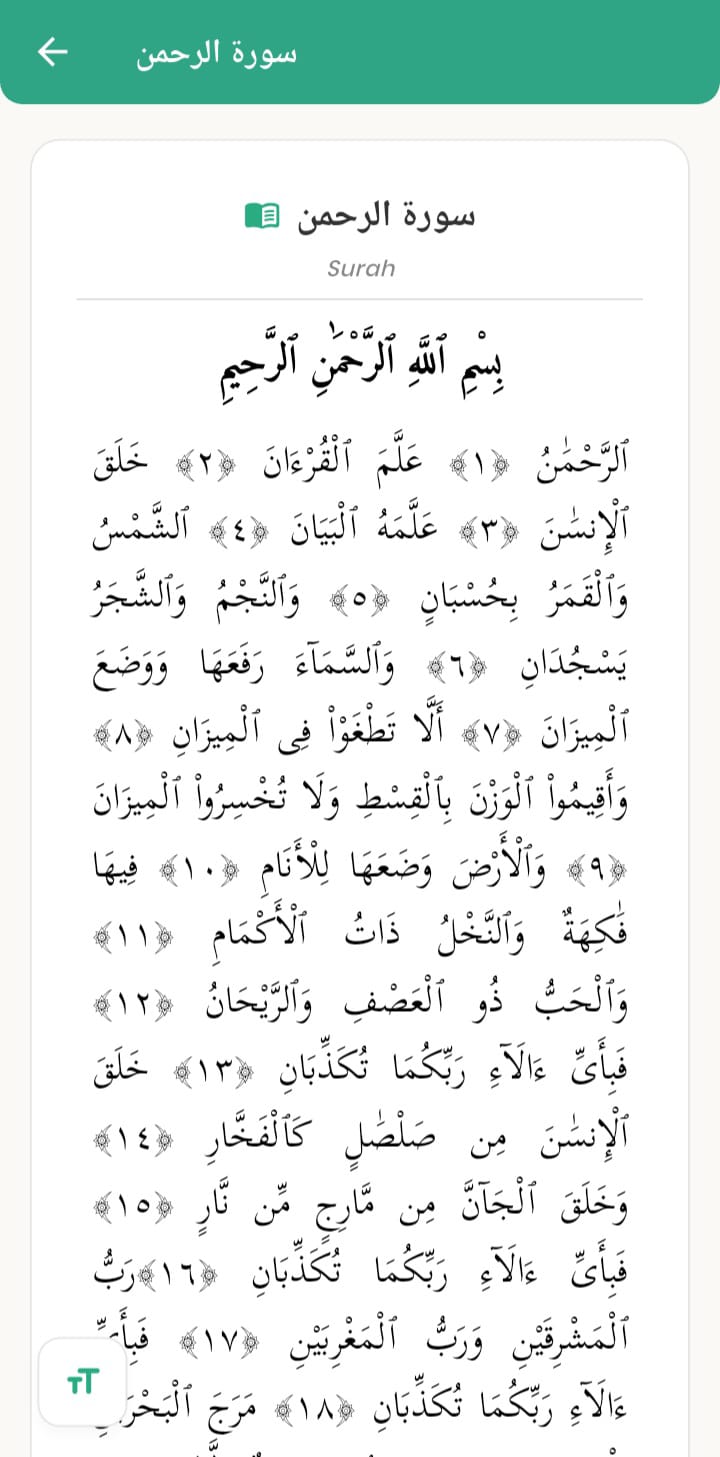 سورة الرحمن
سورة الرحمن
Surah
بِسْمِ ٱللَّهِ ٱلرَّحْمَٰنِ ٱلرَّحِيمِ
ٱلرَّحْمَٰنُ ﴿١﴾ عَلَّمَ ٱلْقُرْءَانَ ﴿٢﴾ خَلَقَ
ٱلْإِنسَٰنَ ﴿٣﴾ عَلَّمَهُ ٱلْبَيَانَ ﴿٤﴾ ٱلشَّمْسُ
وَٱلْقَمَرُ بِحُسْبَانٍ ﴿٥﴾ وَٱلنَّجْمُ وَٱلشَّجَرُ
يَسْجُدَانِ ﴿٦﴾ وَٱلسَّمَآءَ رَفَعَهَا وَوَضَعَ
ٱلْمِيزَانَ ﴿٧﴾ أَلَّا تَطْغَوْا۟ فِى ٱلْمِيزَانِ ﴿٨﴾
وَأَقِيمُوا۟ ٱلْوَزْنَ بِٱلْقِسْطِ وَلَا تُخْسِرُوا۟ ٱلْمِيزَانَ
﴿٩﴾ وَٱلْأَرْضَ وَضَعَهَا لِلْأَنَامِ ﴿١٠﴾ فِيهَا
فَٰكِهَةٌ وَٱلنَّخْلُ ذَاتُ ٱلْأَكْمَامِ ﴿١١﴾
وَٱلْحَبُّ ذُو ٱلْعَصْفِ وَٱلرَّيْحَانُ ﴿١٢﴾
فَبِأَىِّ ءَالَآءِ رَبِّكُمَا تُكَذِّبَانِ ﴿١٣﴾ خَلَقَ
ٱلْإِنسَٰنَ مِن صَلْصَٰلٍ كَٱلْفَخَّارِ ﴿١٤﴾
وَخَلَقَ ٱلْجَآنَّ مِن مَّارِجٍ مِّن نَّارٍ ﴿١٥﴾
فَبِأَىِّ ءَالَآءِ رَبِّكُمَا تُكَذِّبَانِ ﴿١٦﴾رَبُّ
ٱلْمَشْرِقَيْنِ وَرَبُّ ٱلْمَغْرِبَيْنِ ﴿١٧﴾ فَبِأَىِّ
ءَالَآءِ رَبِّكُمَا تُكَذِّبَانِ ﴿١٨﴾ مَرَجَ
TT